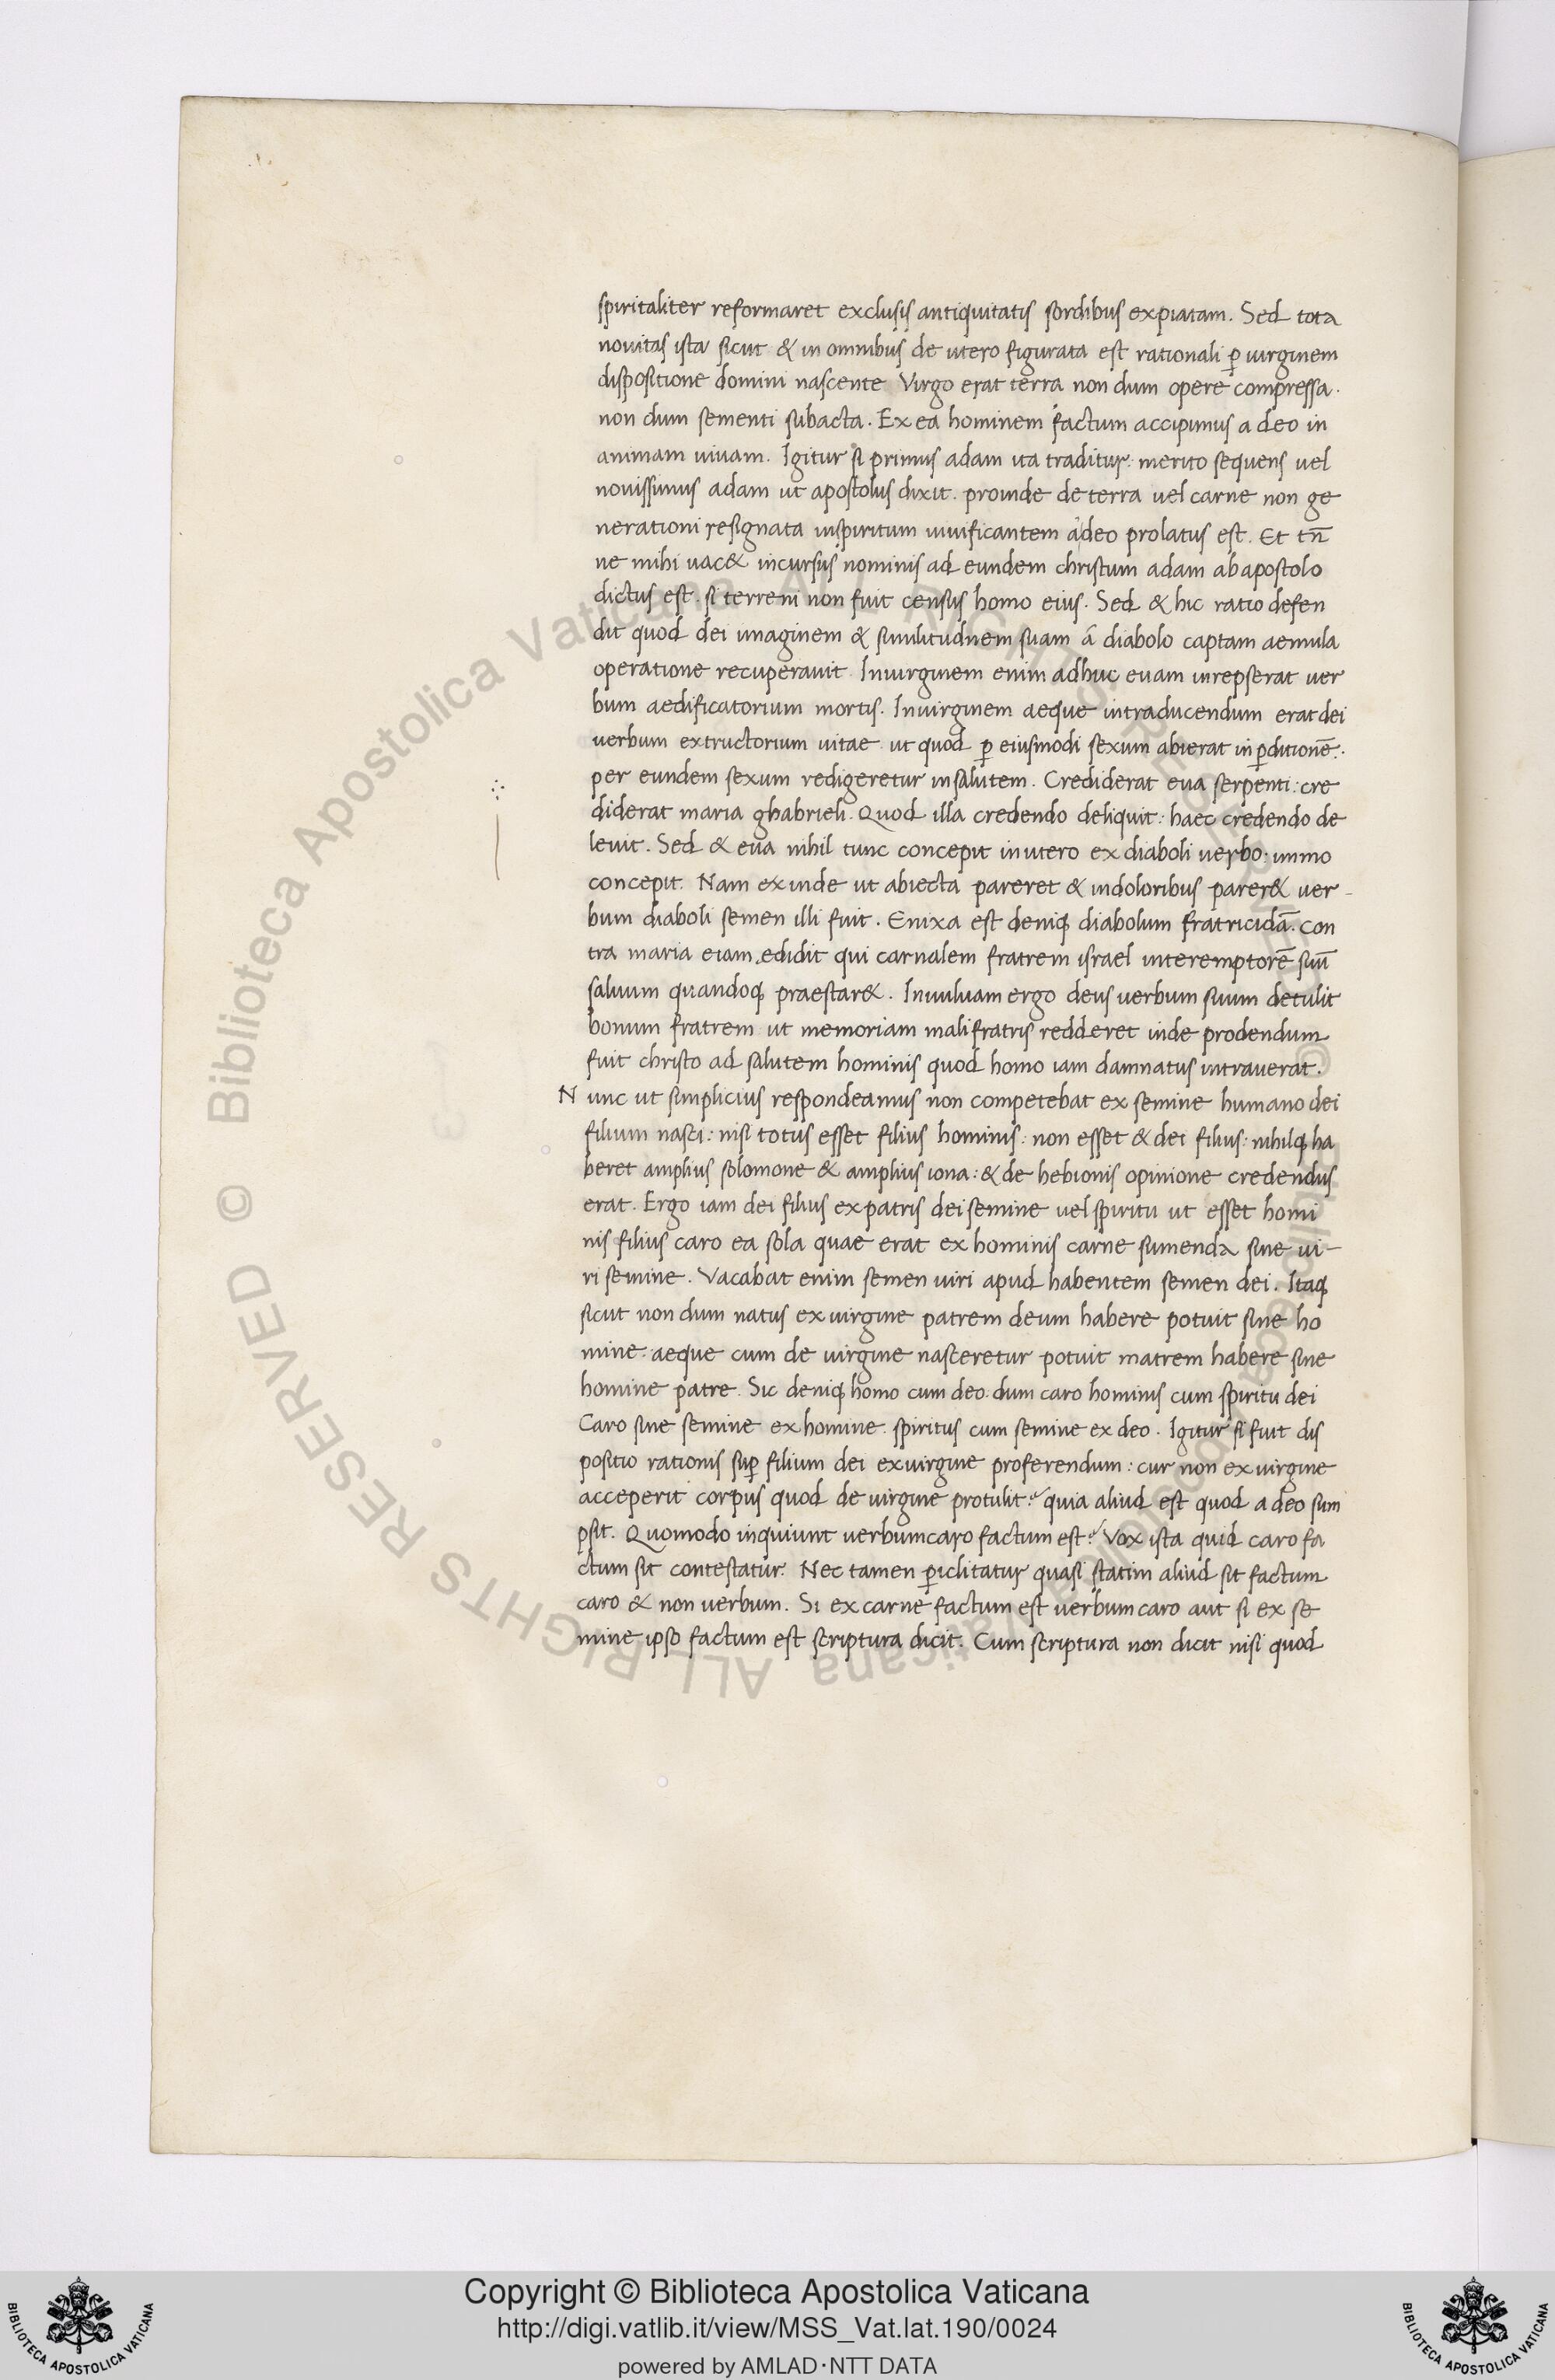 spiritaliter reformaret exclusis antiquitatis sordibus expiatam. Sed tota
nouitas ista sicut & in omnibus de utero figurata est rationali ꝑ uirginem
dispositione domini nascente Virgo erat terra non dum opere compressa.
non dum sementi subacta. Ex ea hominem factum accipimus a deo in
animam uiuam. Igitur si primus adam ita traditur: merito sequens uel
nouissimus adam ut apostolus dixit. proinde de terra uel carne non ge
nerationi resignata inspiritum uiuificantem adeo prolatus est. Et tn̄
ne mihi uac& incursus nominis ad eundem christum adam ab apostolo
dictus est. si terreni non fuit census homo eius. Sed & hic ratio defen
dit quod dei imaginem & similitudnem suam á diabolo captam aemula
operatione recuperauit. Inuirginem enim adhuc euam inrepserat uer
bum aedificatorium mortis. Inuirginem aeque intraducendum erat dei
uerbum extructorium uitae. ut quod ꝑ eiusmodi sexum abierat in ꝑditionē:
per eundem sexum redigeretur insalutem. Crediderat eua serpenti: cre
diderat maria ghabrieli. Quod illa credendo deliquit: haec credendo de
leuit. Sed & eua nihil tunc concepit inutero ex diaboli uerbo: immo
concepit. Nam exinde ut abiecta pareret & indoloribus parer& uer-
bum diaboli semen illi fuit. Enixa est deniq; diabolum fratricidā. Con
tra maria eiam edidit qui carnalem fratrem israel interemptorē suū
saluum quandoq; praestar&. Inuuluam ergo deus uerbum suum detulit
bonum fratrem ut memoriam mali fratris redderet inde prodendum
fuit christo ad salutem hominis quod homo iam damnatus intrauerat.
Nunc ut simplicius respondeamus non competebat ex semine humano dei
filium nasci: nisi totus esset filius hominis: non esset & dei filius: nihilq; ha
beret amplius solomone & amplius iona: & de hebionis opinione credendus
erat. Ergo iam dei filius expatris dei semine uel spiritu ut esset homi
nis filius caro ea sola quae erat ex hominis carne sumenda sine ui-
ri semine. Vacabat enim semen uiri apud habentem semen dei. Itaq;
sicut non dum natus ex uirgine patrem deum habere potuit sine ho
mine: aeque cum de uirgine nasceretur potuit matrem habere sine
homine patre. Sic deniq; homo cum deo: dum caro hominis cum spiritu dei
Caro sine semine ex homine. spiritus cum semine ex deo. Igitur si fuit dis
positio rationis suꝑ filium dei exuirgine proferendum: cur non exuirgine
acceperit corpus quod de uirgine protulit? quia aliud est quod a deo sum
psit. Quomodo inquiunt uerbumcaro factum est? Vox ista quid caro fa
ctum sit contestatur. Nec tamen ꝑiclitatur quasi statim aliud sit factum
caro & non uerbum. Si ex carne factum est uerbum caro aut si ex se
mine ipso factum est scriptura dicit. Cum scriptura non dicit nisi quod
© Biblioteca Apostolica Vaticana ALL RIGHTS RESERVED
Copyright © Biblioteca Apostolica Vaticana
http://digi.vatlib.it/view/MSS_Vat.lat.190/0024
powered by AMLAD·NTT DATA
BIBLIOTECA APOSTOLICA VATICANA
BIBLIOTECA APOSTOLICA VATICANA